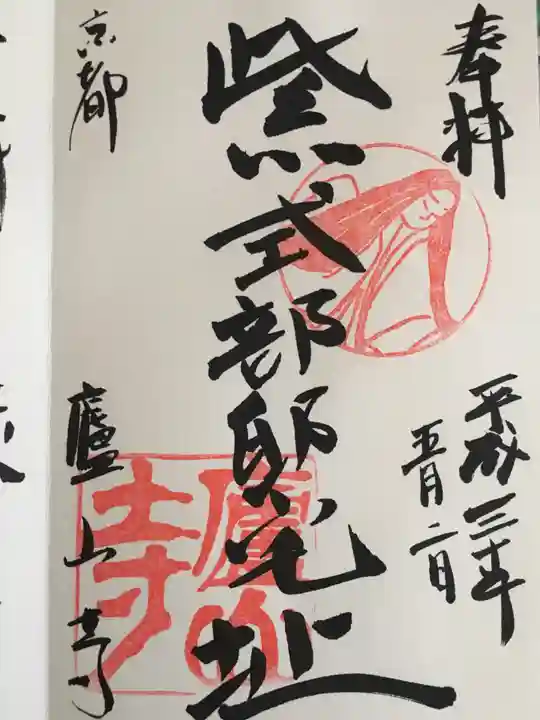 奉拝
平成三年
五月二日
紫式部邸宅址
京都
廬山寺
廬山寺